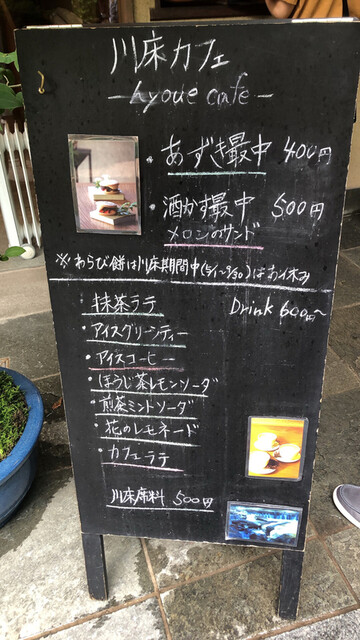 川床カフェ
- hyoue cafe -
・あずき最中 400円
・酒かす最中 500円
メロンのサンド
※わらび餅は川床期間中(5/1~9/30)はお休み
Drink 600円~
・抹茶ラテ
・アイスグリーンティー
・アイスコーヒー
・ほうじ茶レモンソーダ
・煎茶ミントソーダ
・花のレモネード
・カフェラテ
川床席料 500円